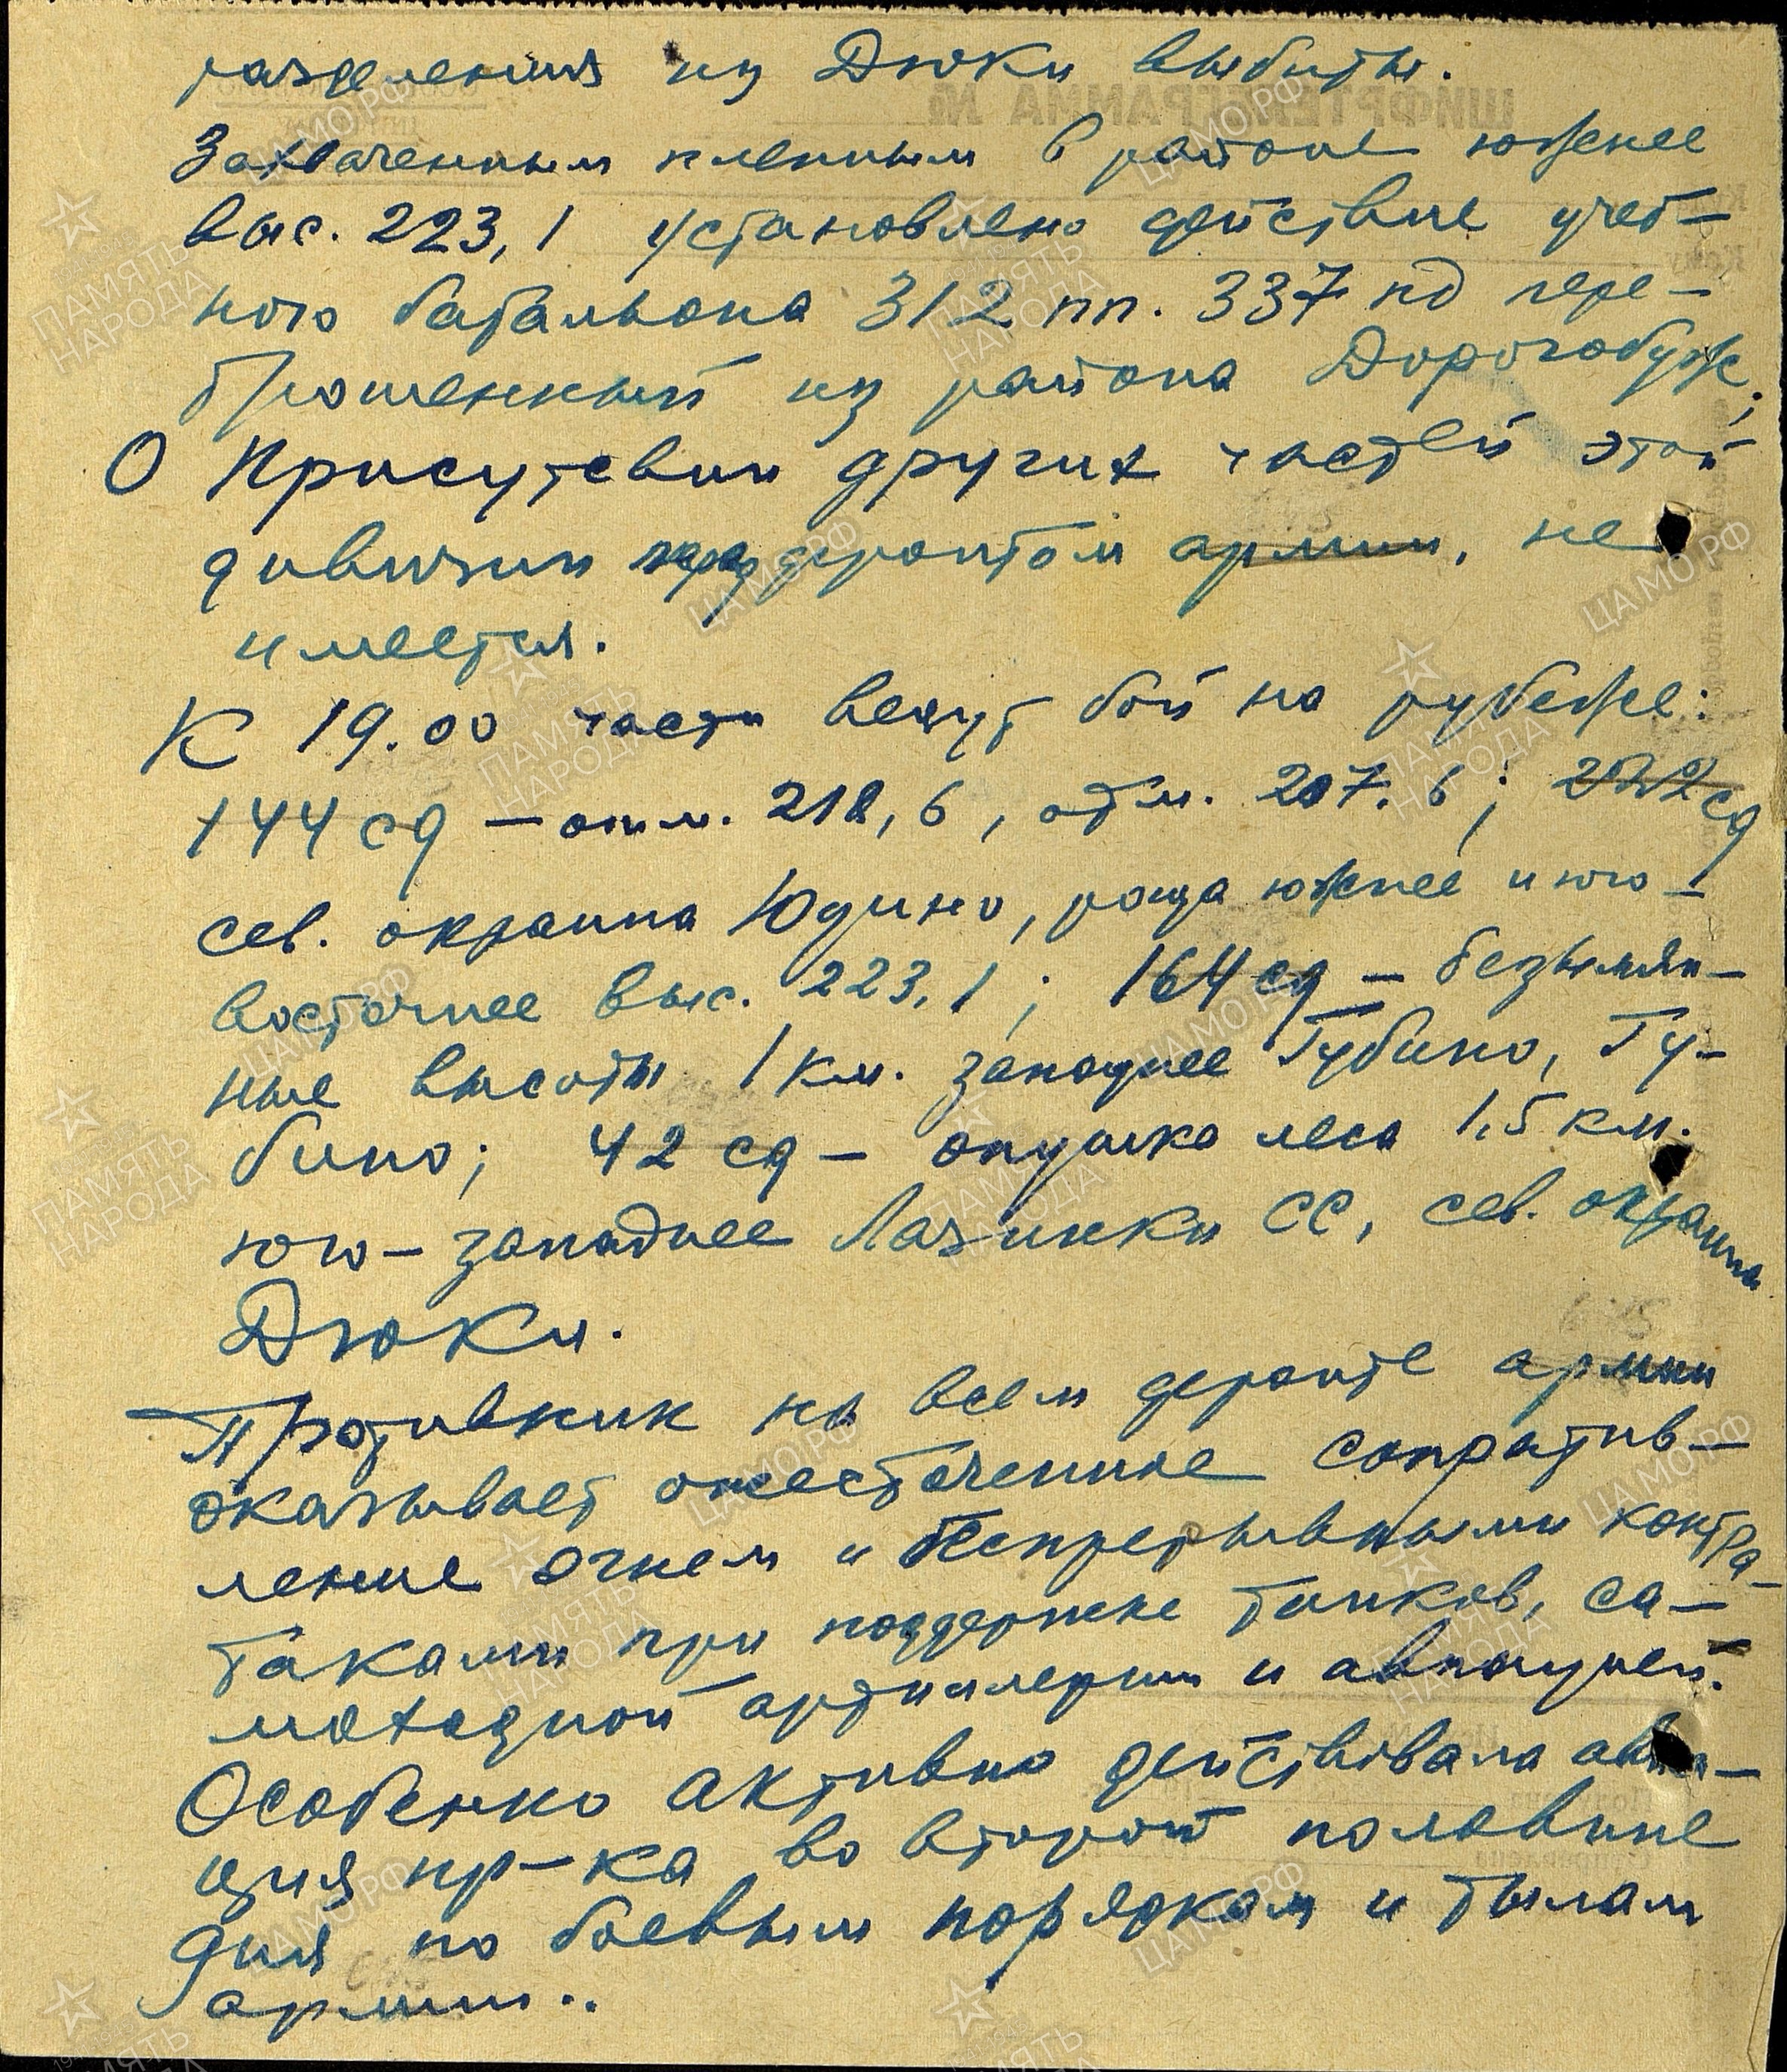 разделения из Дюки выбиты.
Захваченным пленным в районе южнее
выс. 223,1 установлено действие учеб-
ного батальона 312 пп. 337 пд пере-
брошенный из района Дорогобуж;
О присутсвии других частей этой
дивизии перед фронтом армии, не
имеется.
К 19.00 части ведут бой на рубеже:
144 сд – отм. 218,6, отм. 207.6; 222 сд
сев. окраина Юдино, роща южнее и юго-
восточнее выс. 223,1; 164 сд – безымян-
ные высоты 1 км. западнее Губино, Гу-
бино; 42 сд – опушка леса 1,5 км.
юго-западнее Лазинки СС, сев. окраина
Дюки.
Противник на всем фронте армии
оказывает ожесточенное сопротив-
ление огнем и непрерывными контра-
таками при поддержке танков, са-
моходной артиллерии и авиацией.
Особенно активно действовала авиа-
ция пр-ка во второй половине
дня по боевым порядкам и тылам
армии..